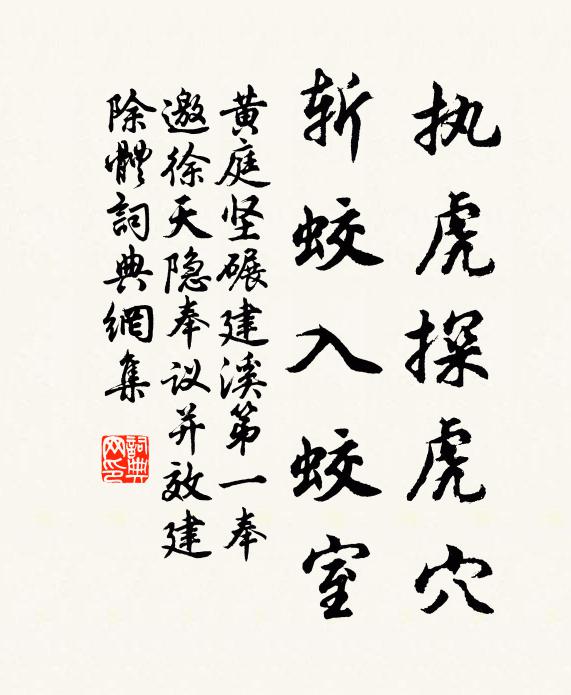 执虎探虎穴
斩蛟入蛟室
黄庭坚碾建溪第一奉
邀徐天隐奉议并效建
除體詞典網集
詞典网印